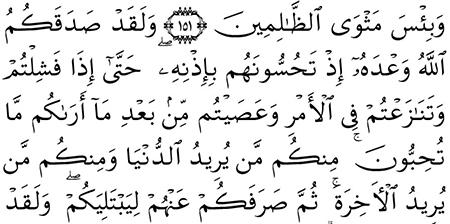 وَبِئْسَ مَثْوَى ٱلظَّٰلِمِينَ ﴿١٥١﴾ وَلَقَدْ صَدَقَكُمُ
ٱللَّهُ وَعْدَهُۥٓ إِذْ تَحُسُّونَهُم بِإِذْنِهِۦ ۖ حَتَّىٰٓ إِذَا فَشِلْتُمْ
وَتَنَٰزَعْتُمْ فِى ٱلْأَمْرِ وَعَصَيْتُم مِّنۢ بَعْدِ مَآ أَرَىٰكُم مَّا
تُحِبُّونَ ۚ مِنكُم مَّن يُرِيدُ ٱلدُّنْيَا وَمِنكُم مَّن
يُرِيدُ ٱلْءَاخِرَةَ ۚ ثُمَّ صَرَفَكُمْ عَنْهُمْ لِيَبْتَلِيَكُمْ ۖ وَلَقَدْ